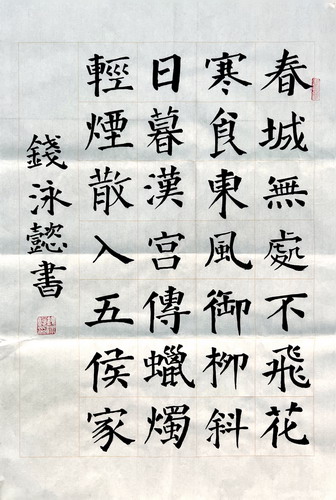 春城無處不飛花
寒食東風御柳斜
日暮漢宮傳蠟燭
輕煙散入五侯家
錢泳懿書